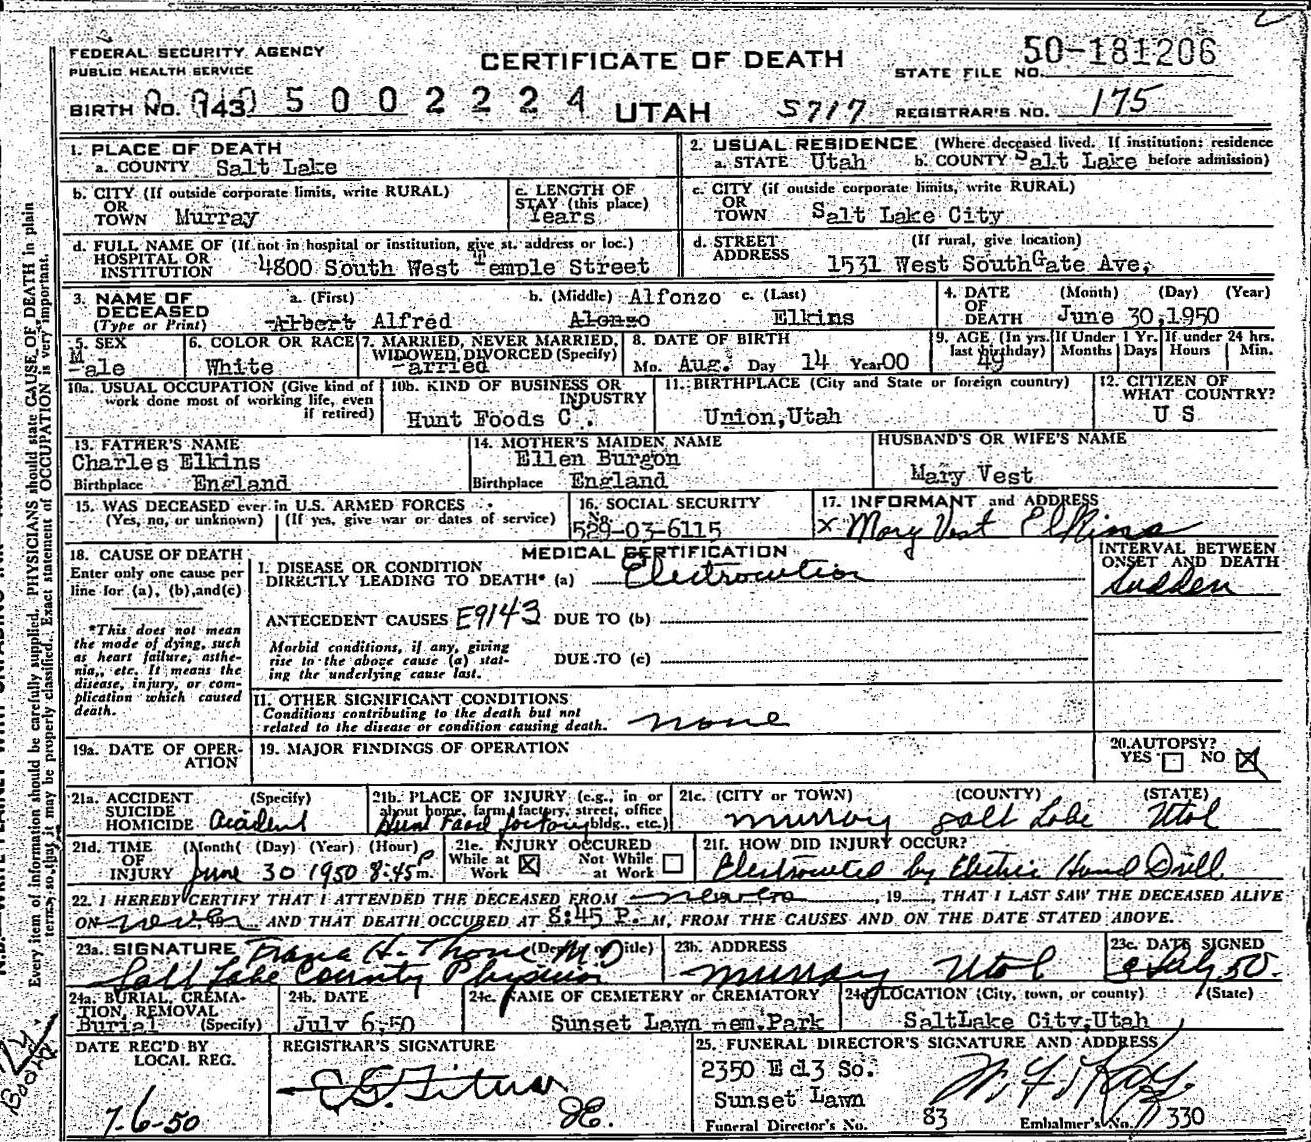 FEDERAL SECURITY AGENCY
PUBLIC HEALTH SERVICE
CERTIFICATE OF DEATH
STATE FILE NO. 50-181206
BIRTH NO. 143 5002224
UTAH
5717
REGISTRAR'S NO. 175
1. PLACE OF DEATH
a. COUNTY Salt Lake
2. USUAL RESIDENCE (Where deceased lived. If institution: residence before admission)
a. STATE Utah b. COUNTY Salt Lake
b. CITY (If outside corporate limits, write RURAL)
OR TOWN Murray
c. LENGTH OF STAY (this place)
Years
c. CITY (if outside corporate limits, write RURAL)
OR TOWN Salt Lake City
d. FULL NAME OF (If not in hospital or institution, give st. address or loc.)
HOSPITAL OR INSTITUTION 4800 South West Temple Street
d. STREET ADDRESS (If rural, give location)
1531 West SouthGate Ave,
3. NAME OF DECEASED (Type or Print)
a. (First) b. (Middle) Alfonzo c. (Last)
Albert Alfred Alonzo Elkins
4. DATE OF DEATH (Month) (Day) (Year)
June 30,1950
5. SEX
Male
6. COLOR OR RACE
White
7. MARRIED, NEVER MARRIED, WIDOWED, DIVORCED (Specify)
arried
8. DATE OF BIRTH
Mo. Aug. Day 14 Year 00
9. AGE (In yrs. last birthday) 49
If Under 1 Yr. Months Days
If under 24 hrs. Hours Min.
10a. USUAL OCCUPATION (Give kind of work done most of working life, even if retired)
10b. KIND OF BUSINESS OR INDUSTRY
Hunt Foods C .
11. BIRTHPLACE (City and State or foreign country)
Union,Utah
12. CITIZEN OF WHAT COUNTRY?
U S
13. FATHER'S NAME
Charles Elkins
Birthplace England
14. MOTHER'S MAIDEN NAME
Ellen Burgon
Birthplace England
HUSBAND'S OR WIFE'S NAME
Mary Vest
15. WAS DECEASED ever in U.S. ARMED FORCES
(Yes, no, or unknown) (If yes, give war or dates of service)
16. SOCIAL SECURITY No.
529-03-6115
17. INFORMANT and ADDRESS
x Mary Vest Elkins
18. CAUSE OF DEATH
Enter only one cause per line for (a), (b), and (c)
*This does not mean the mode of dying, such as heart failure, asthenia, etc. It means the disease, injury, or complication which caused death.
MEDICAL CERTIFICATION
I. DISEASE OR CONDITION DIRECTLY LEADING TO DEATH* (a) Electrocution
INTERVAL BETWEEN ONSET AND DEATH
Sudden
ANTECEDENT CAUSES E9143 DUE TO (b)
Morbid conditions, if any, giving rise to the above cause (a) stating the underlying cause last.
DUE TO (c)
II. OTHER SIGNIFICANT CONDITIONS
Conditions contributing to the death but not related to the disease or condition causing death. none
19a. DATE OF OPERATION
19. MAJOR FINDINGS OF OPERATION
20. AUTOPSY?
YES NO
21a. ACCIDENT SUICIDE HOMICIDE (Specify) Accident
21b. PLACE OF INJURY (e.g., in or about home, farm, factory, street, office bldg., etc.)
Hunt Food factory
21c. (CITY or TOWN) (COUNTY) (STATE)
Murray Salt Lake Utah
21d. TIME OF INJURY (Month) (Day) (Year) (Hour)
June 30 1950 8:45 P m.
21e. INJURY OCCURED
While at Work Not While at Work
21f. HOW DID INJURY OCCUR?
Electrocuted by Electric Hand Drill
22. I HEREBY CERTIFY THAT I ATTENDED THE DECEASED FROM never, 19, THAT I LAST SAW THE DECEASED ALIVE
ON never 19 AND THAT DEATH OCCURED AT 8:45 P. M, FROM THE CAUSES AND ON THE DATE STATED ABOVE.
23a. SIGNATURE (Degree or Title) M.D
Salt Lake County Physician
23b. ADDRESS
Murray Utah
23c. DATE SIGNED
July 50.
24a. BURIAL, CREMATION, REMOVAL (Specify)
Burial
24b. DATE
July 6,50
24c. NAME OF CEMETERY or CREMATORY
Sunset Lawn mem.Park
24d. LOCATION (City, town, or county) (State)
SaltLake City,Utah
DATE REC'D BY LOCAL REG.
7-6-50
REGISTRAR'S SIGNATURE
25. FUNERAL DIRECTOR'S SIGNATURE AND ADDRESS
2350 E d3 So.
Sunset Lawn
Funeral Director's No. 83 Embalmer's No. 330
Every item of information should be carefully supplied. PHYSICIANS should state CAUSE OF DEATH in plain
terms, so that it may be properly classified. Exact statement of OCCUPATION is very important.